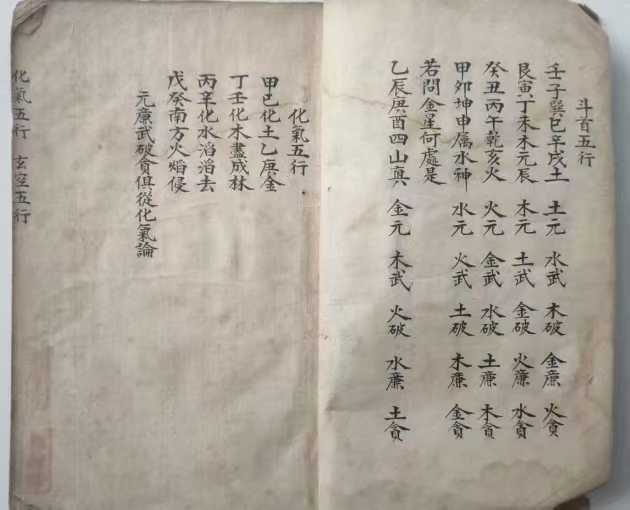 斗首五行
壬子巽巳辛戌土 土元 水武 木破 金廉 火貪
艮寅丁未木元辰 木元 土武 金破 火廉 水貪
癸丑丙午乾亥火 火元 金武 水破 土廉 木貪
甲卯坤申属水神 水元 火武 土破 木廉 金貪
若問金星何處是
乙辰庚酉四山真 金元 木武 火破 水廉 土貪
化氣五行
甲己化土乙庚金
丁壬化木盡成林
丙辛化水滔滔去
戊癸南方火焰侵
元廉武破貪俱從化氣論
化氣五行 玄空五行